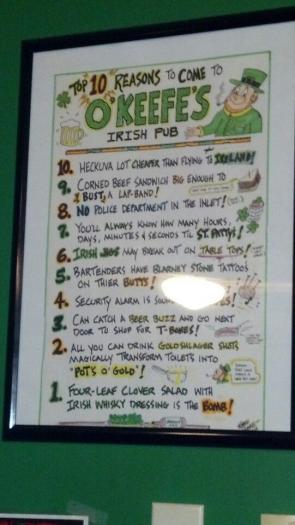 TOP 10 REASONS TO COME TO
O'KEEFE'S
IRISH PUB
10. HECKUVA LOT CHEAPER THAN FLYING TO IRELAND!
9. CORNED BEEF SANDWICH BIG ENOUGH TO
BUST A LAP-BAND!
8. NO POLICE DEPARTMENT IN THE INLET!
7. YOU'LL ALWAYS KNOW HOW MANY HOURS,
DAYS, MINUTES & SECONDS TIL ST. PATTY'S!
6. IRISH JIGS MAY BREAK OUT ON TABLE TOPS!
5. BARTENDERS HAVE BLARNEY STONE TATTOOS
ON THIER BUTTS!
4. SECURITY ALARM IS
3. CAN CATCH A BEER BUZZ AND GO NEXT
DOOR TO SHOP FOR T-BONES!
2. ALL YOU CAN DRINK GOLDSHLAGER SHOTS
MAGICALLY TRANSFORM TOILETS INTO
"POT'S O' GOLD"!
1. FOUR-LEAF CLOVER SALAD WITH
IRISH WHISKY DRESSING IS THE BOMB!